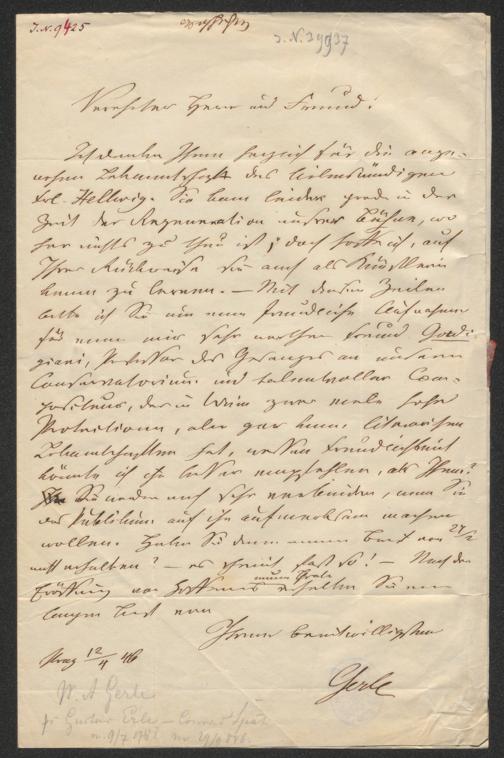 J.N. 9425
J.N. 29937
Verehrter Herr und Freund!
Ich danke Ihnen herzlich für die ange-
nehme Bekanntschaft des liebenswürdigen
Frl. Hellwig. Sie kam leider grade in der
Zeit der Regeneration unsrer Bühne, wo
hier nichts zu thun ist; doch hoffe ich, auf
Ihrer Rückreise sie auch als Künstlerin
kennen zu lernen. — Mit diesen Zeilen
bitte ich Sie um eine freundliche Aufnahme
für einen mir sehr werthen Freund Gordi-
giani, Professor des Gesanges an unserm
Conservatorium und talentvoller Com-
positeur, der in Wien zwar viele hohe
Protectionen, aber gar keine literarischen
Bekanntschaften hat, wessen Freundlichkeit
könnte ich ihn besser empfehlen, als Ihnen?
Sie werden mich sehr verbinden, wenn Sie
das Publikum auf ihn aufmerksam machen
wollen. Haben Sie denn meinen Brief von 27/2
nicht erhalten? — es scheint fast so! — Nach der
Eröffnung von erhalten Sie einen
langen Brief von
Ihrem bereitwilligsten
Gerle
Prag 12/4 46
W. A Gerle